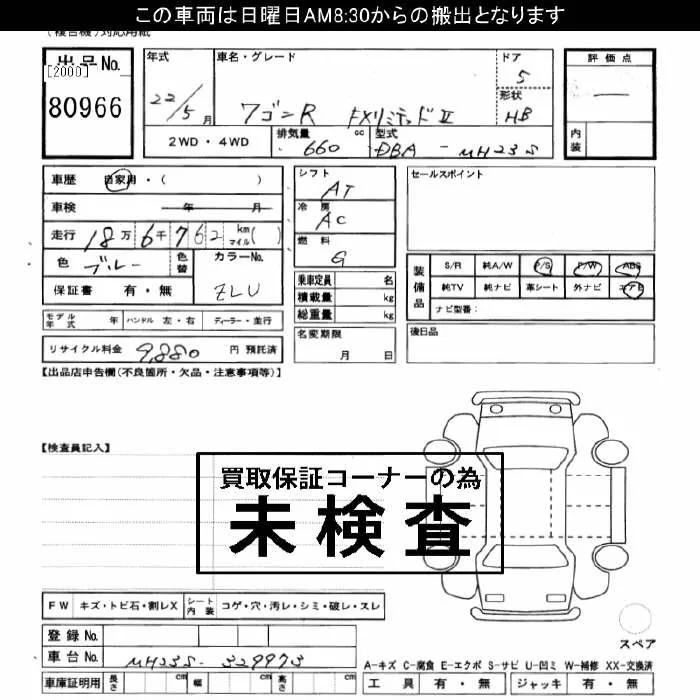 この車両は日曜日AM8:30からの搬出となります
(複合機)対応用紙
出品No.
[2000]
80966
年式
22/5月
車名・グレード
ワゴンR FXリミテッドⅡ
ドア
5
形状
HB
評価点
内装
2WD・4WD
排気量
660 cc
型式
DBA-MH23S
車歴 自家用・( )
車検 年 月
走行 18万6千762 km マイル( )
色 ブルー 色替
カラーNo.
ZLU
保証書 有・無
シフト
AT
冷房
AC
燃料
G
乗車定員 名
積載量 kg
総重量 kg
セールスポイント
装備品
S/R 純A/W P/S P/W ABS
純TV 純ナビ 革シート 外ナビ エアB
ナビ型番:
モデル年式 年 ハンドル 左・右 ディーラー・並行
名変期限
月 日
後日品
リサイクル料金 9,880 円 預託済
【出品店申告欄(不良箇所・欠品・注意事項等)】
【検査員記入】
買取保証コーナーの為
未検査
FW キズ・トビ石・割レX シート内装 コゲ・穴・汚レ・シミ・破レ・スレ
登録No.
車台No. MH23S-329973
スペア
A-キズ C-腐食 E-エクボ S-サビ U-凹ミ W-補修 XX-交換済
車庫証明用 長さ cm 幅 cm 高さ cm
工具 有・無 ジャッキ 有・無